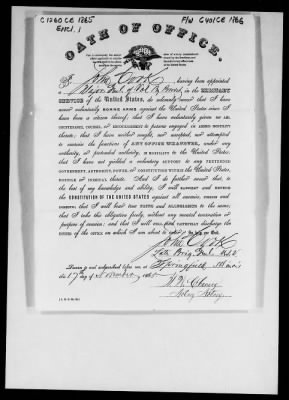 C1260 CB 1865
Encl. 1
F/W C401 CB 1866
OATH OF OFFICE.
I, John Cook having been appointed
a Major Genl. of Vol. By Brevet, in the MILITARY
SERVICE of the United States, do solemnly swear that I have
never voluntarily BORNE ARMS against the United States since I
have been a citizen thereof; that I have voluntarily given NO AID,
COUNTENANCE, COUNSEL, or ENCOURAGEMENT to persons engaged in ARMED HOSTILITY
thereto; that I have neither sought, nor accepted, nor attempted
to exercise the functions of ANY OFFICE WHATEVER, under any
authority, or pretended authority, IN HOSTILITY to the United States;
that I have not yielded a voluntary support to ANY PRETENDED
GOVERNMENT, AUTHORITY, POWER, or CONSTITUTION WITHIN the United States,
HOSTILE or INIMICAL thereto. And I do further swear that, to
the best of my knowledge and ability, I will SUPPORT and DEFEND
the CONSTITUTION OF THE UNITED STATES against all enemies, FOREIGN and
DOMESTIC; that I will bear TRUE FAITH and ALLEGIANCE to the same;
that I take this obligation freely, without any mental reservation or
purpose of evasion; and that I will WELL AND FAITHFULLY DISCHARGE THE
DUTIES OF THE OFFICE on which I am about to enter: So help me God.
John Cook
Late Brig. Genl. U.S.V.
Sworn to and subscribed before me, at Springfield Illinois
this 17 day of November 1865
Notary